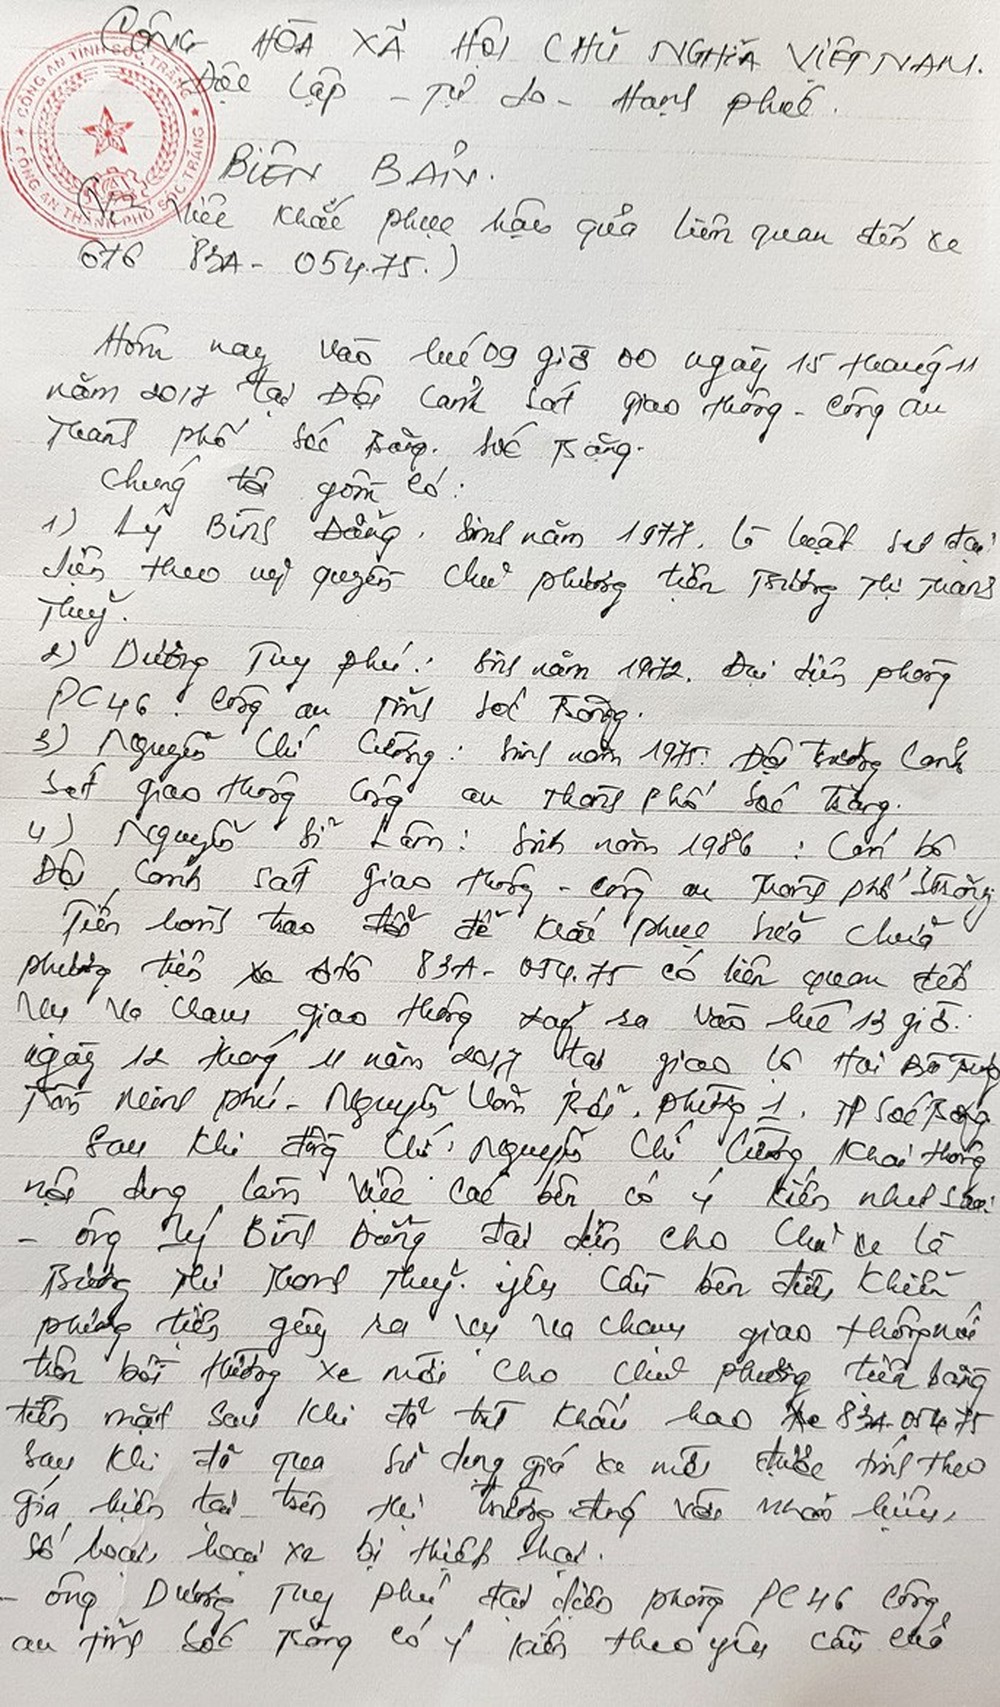 CỘNG HÒA XÃ HỘI CHỦ NGHĨA VIỆT NAM.
Độc lập - Tự do - Hạnh phúc.
CÔNG AN TỈNH SÓC TRĂNG
CÔNG AN THÀNH PHỐ SÓC TRĂNG
BIÊN BẢN.
(Về việc khắc phục hậu quả liên quan đến xe
ôtô 83A - 054.75.)
Hôm nay vào lúc 09 giờ 00 ngày 15 tháng 11
năm 2017 tại Đội Cảnh sát giao thông - Công an
Thành phố Sóc Trăng. Sóc Trăng.
Chúng tôi gồm có:
1) Lý Bình Đẳng. Sinh năm 1977. là luật sư đại
diện theo uỷ quyền chủ phương tiện Trương Thị Thanh
Thuỷ.
2) Dương Tuy Phú: Sinh năm 1972. Đại diện phòng
PC46. Công an tỉnh Sóc Trăng.
3) Nguyễn Chí Cường: Sinh năm 1975: Đội trưởng Cảnh
sát giao thông Công an thành phố Sóc Trăng.
4) Nguyễn Sĩ Lâm: Sinh năm 1986: Cán bộ
Đội Cảnh sát giao thông - Công an Thành phố STrăng
Tiến hành trao đổi để khắc phục sửa chữa
phương tiện xe ôtô 83A - 054.75 có liên quan đến
vụ va chạm giao thông xảy ra vào lúc 13 giờ.
ngày 12 tháng 11 năm 2017 tại giao lộ Hai Bà Trưng
Trần Minh Phú - Nguyễn Văn Trỗi. phường 1. TP Sóc Trăng
Sau khi đồng chí: Nguyễn Chí Cường khai thông
nội dung làm việc các bên có ý kiến như sau:
- ông Lý Bình Đẳng đại diện cho chủ xe là
Trương Thị Thanh Thuỷ. yêu cầu bên điều khiển
phương tiện gây ra vụ va chạm giao thông nói
trên bồi thường xe mới cho chủ phương tiện bằng
tiền mặt sau khi đã trừ khấu hao xe 83A-054.75
sau khi đã qua sử dụng giá xe mới được tính theo
giá hiện tại trên thị trường đúng với nhãn hiệu,
số loại, loại xe bị thiệt hại.
- ông Dương Tuy Phú đại diện phòng PC46 Công
an tỉnh Sóc Trăng có ý kiến theo yêu cầu của